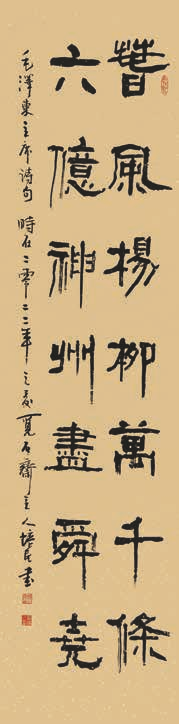 萅風楊柳萬千條
六億神州盡舜堯
毛澤東主席詩句 時在二零二二年之夏 覓石齋主人培元書